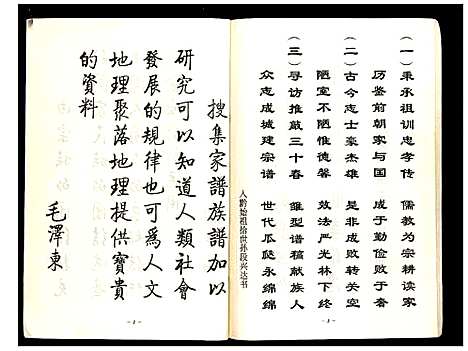 (一)
秉承祖训忠孝传 儒教为宗耕读家
历鉴前朝家与国 成于勤俭败于奢
(二)
古今志士豪杰雄 是非成败转关空
陋室不陋惟德馨 效法严光林下终
(三)
寻访推敲三十春 雏型谱稿献族人
众志成城建宗谱 世代瓜瓞永绵绵
入黔始祖拾世孙段兴达书
搜集家譜族譜加以
研究可以知道人類社會
發展的規律也可為人文
地理聚落地理提供寶貴
的資料
毛澤東